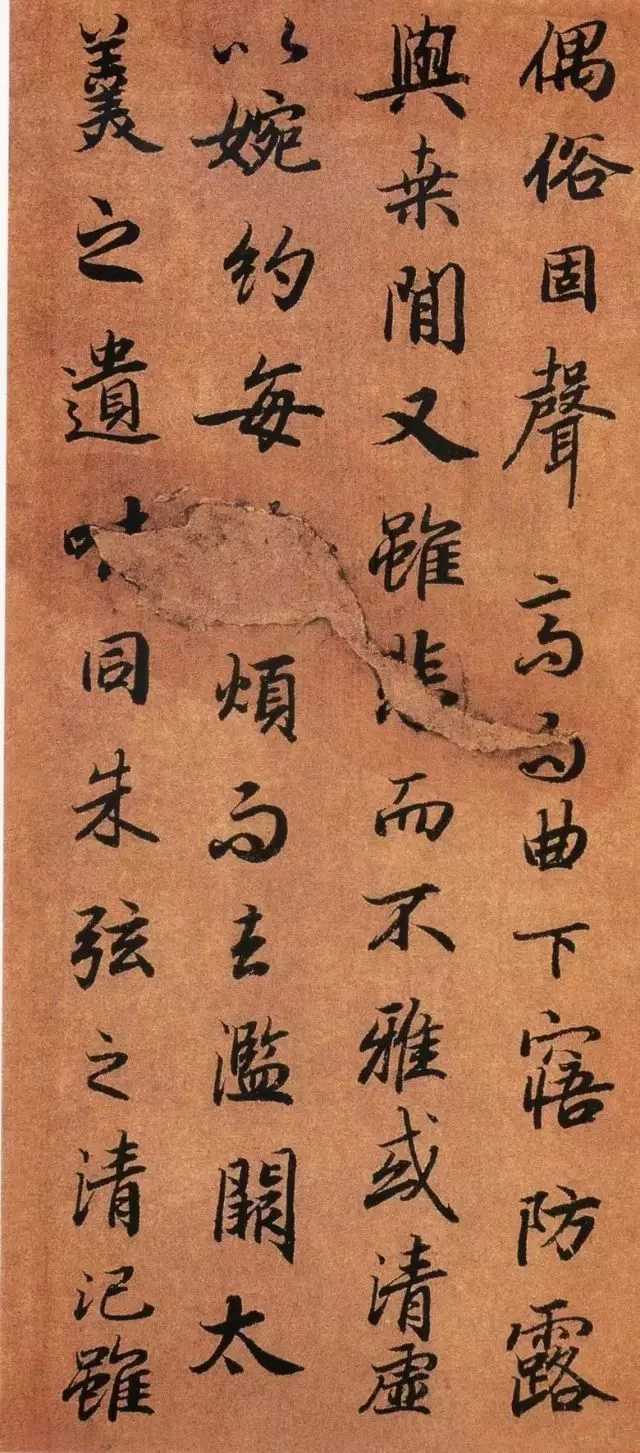 偶俗固聲高而曲下寤防露
與桒間又雖悲而不雅或清虛
以婉約每煩而去濫闕太
羹之遺味同朱弦之清汜雖